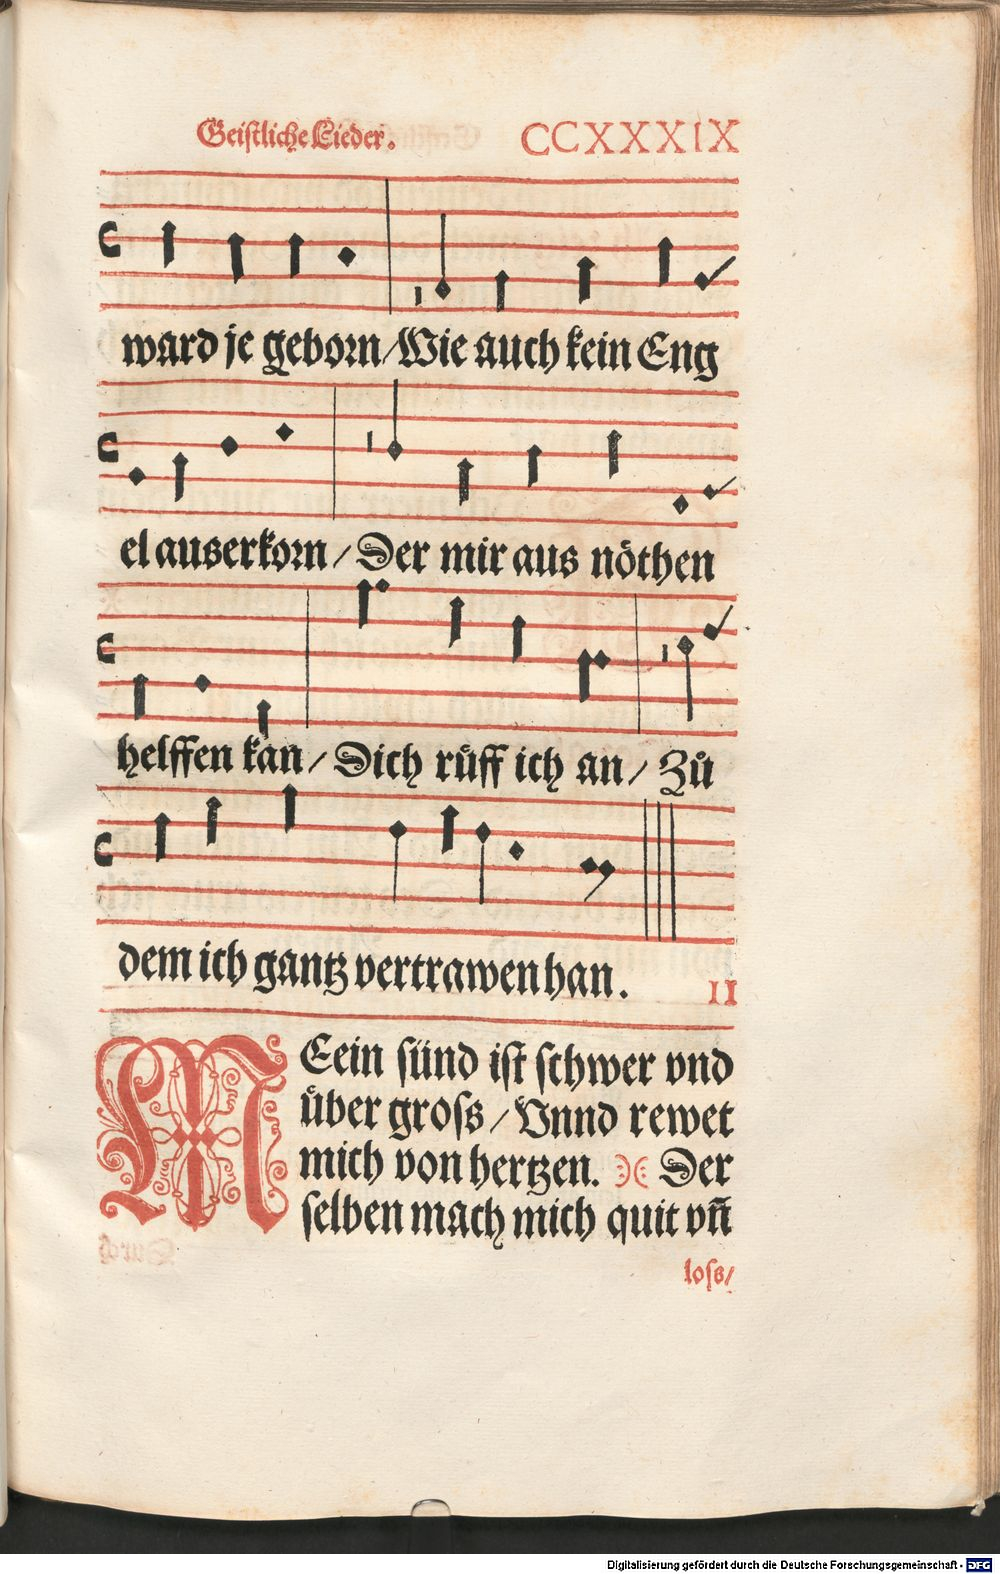 Geistliche Lieder. CCXXXIX
ward je geborn/Wie auch kein Eng
el auserkorn/Der mir aus nöthen
helffen kan/Dich růff ich an/Zů
dem ich gantz vertrawen han.
II
MEein sünd ist schwer vnd
über gross/Vnnd rewet
mich von hertzen. Der
selben mach mich quit vñ
loss/
Digitalisierung gefördert durch die Deutsche Forschungsgemeinschaft - DFG